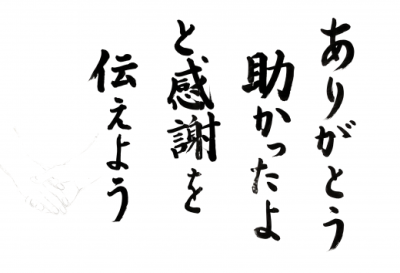 ありがとう
助かったよ
と、感謝を
伝えよう